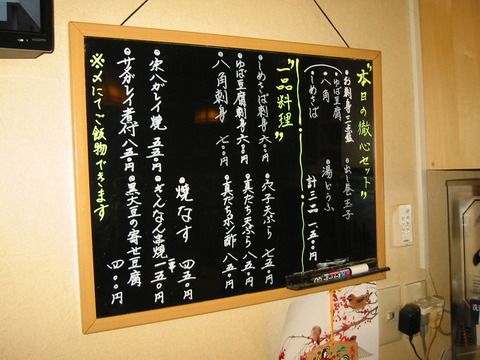 "本日の徹心セット"
・お刺身三点盛
ゆば豆腐
八角
しめさば
・出し巻玉子
・湯どうふ
計三品 一、五〇〇円
"一品料理"
・しめさば刺身 六〇〇円
・ゆば豆腐刺身 六〇〇円
・八角刺身 七〇〇円
・穴子天ぷら 七五〇円
・真だち天ぷら 八五〇円
・真だちポン酢 八五〇円
・焼なす 四五〇円
・宗八ガレイ焼 五五〇円
・ぎんなん串焼 一串 一五〇円
・サメガレイ煮付 八五〇円
・黒大豆の寄せ豆腐 四〇〇円
※〆にてご飯物できます